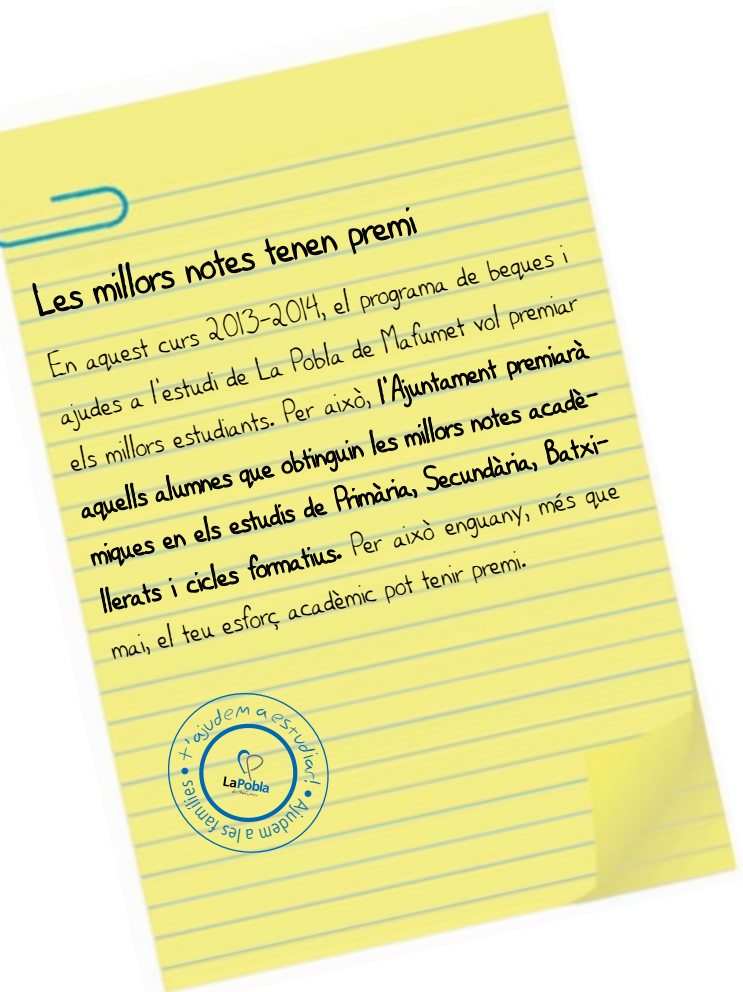 Les millors notes tenen premi
En aquest curs 2013-2014, el programa de beques i
ajudes a l'estudi de La Pobla de Mafumet vol premiar
els millors estudiants. Per això, l'Ajuntament premiarà
aquells alumnes que obtinguin les millors notes acadè-
miques en els estudis de Primària, Secundària, Batxi-
llerats i cicles formatius. Per això enguany, més que
mai, el teu esforç acadèmic pot tenir premi.
t'ajudem a estudiar!
• Ajudem a les famílies •
LaPobla
de Mafumet